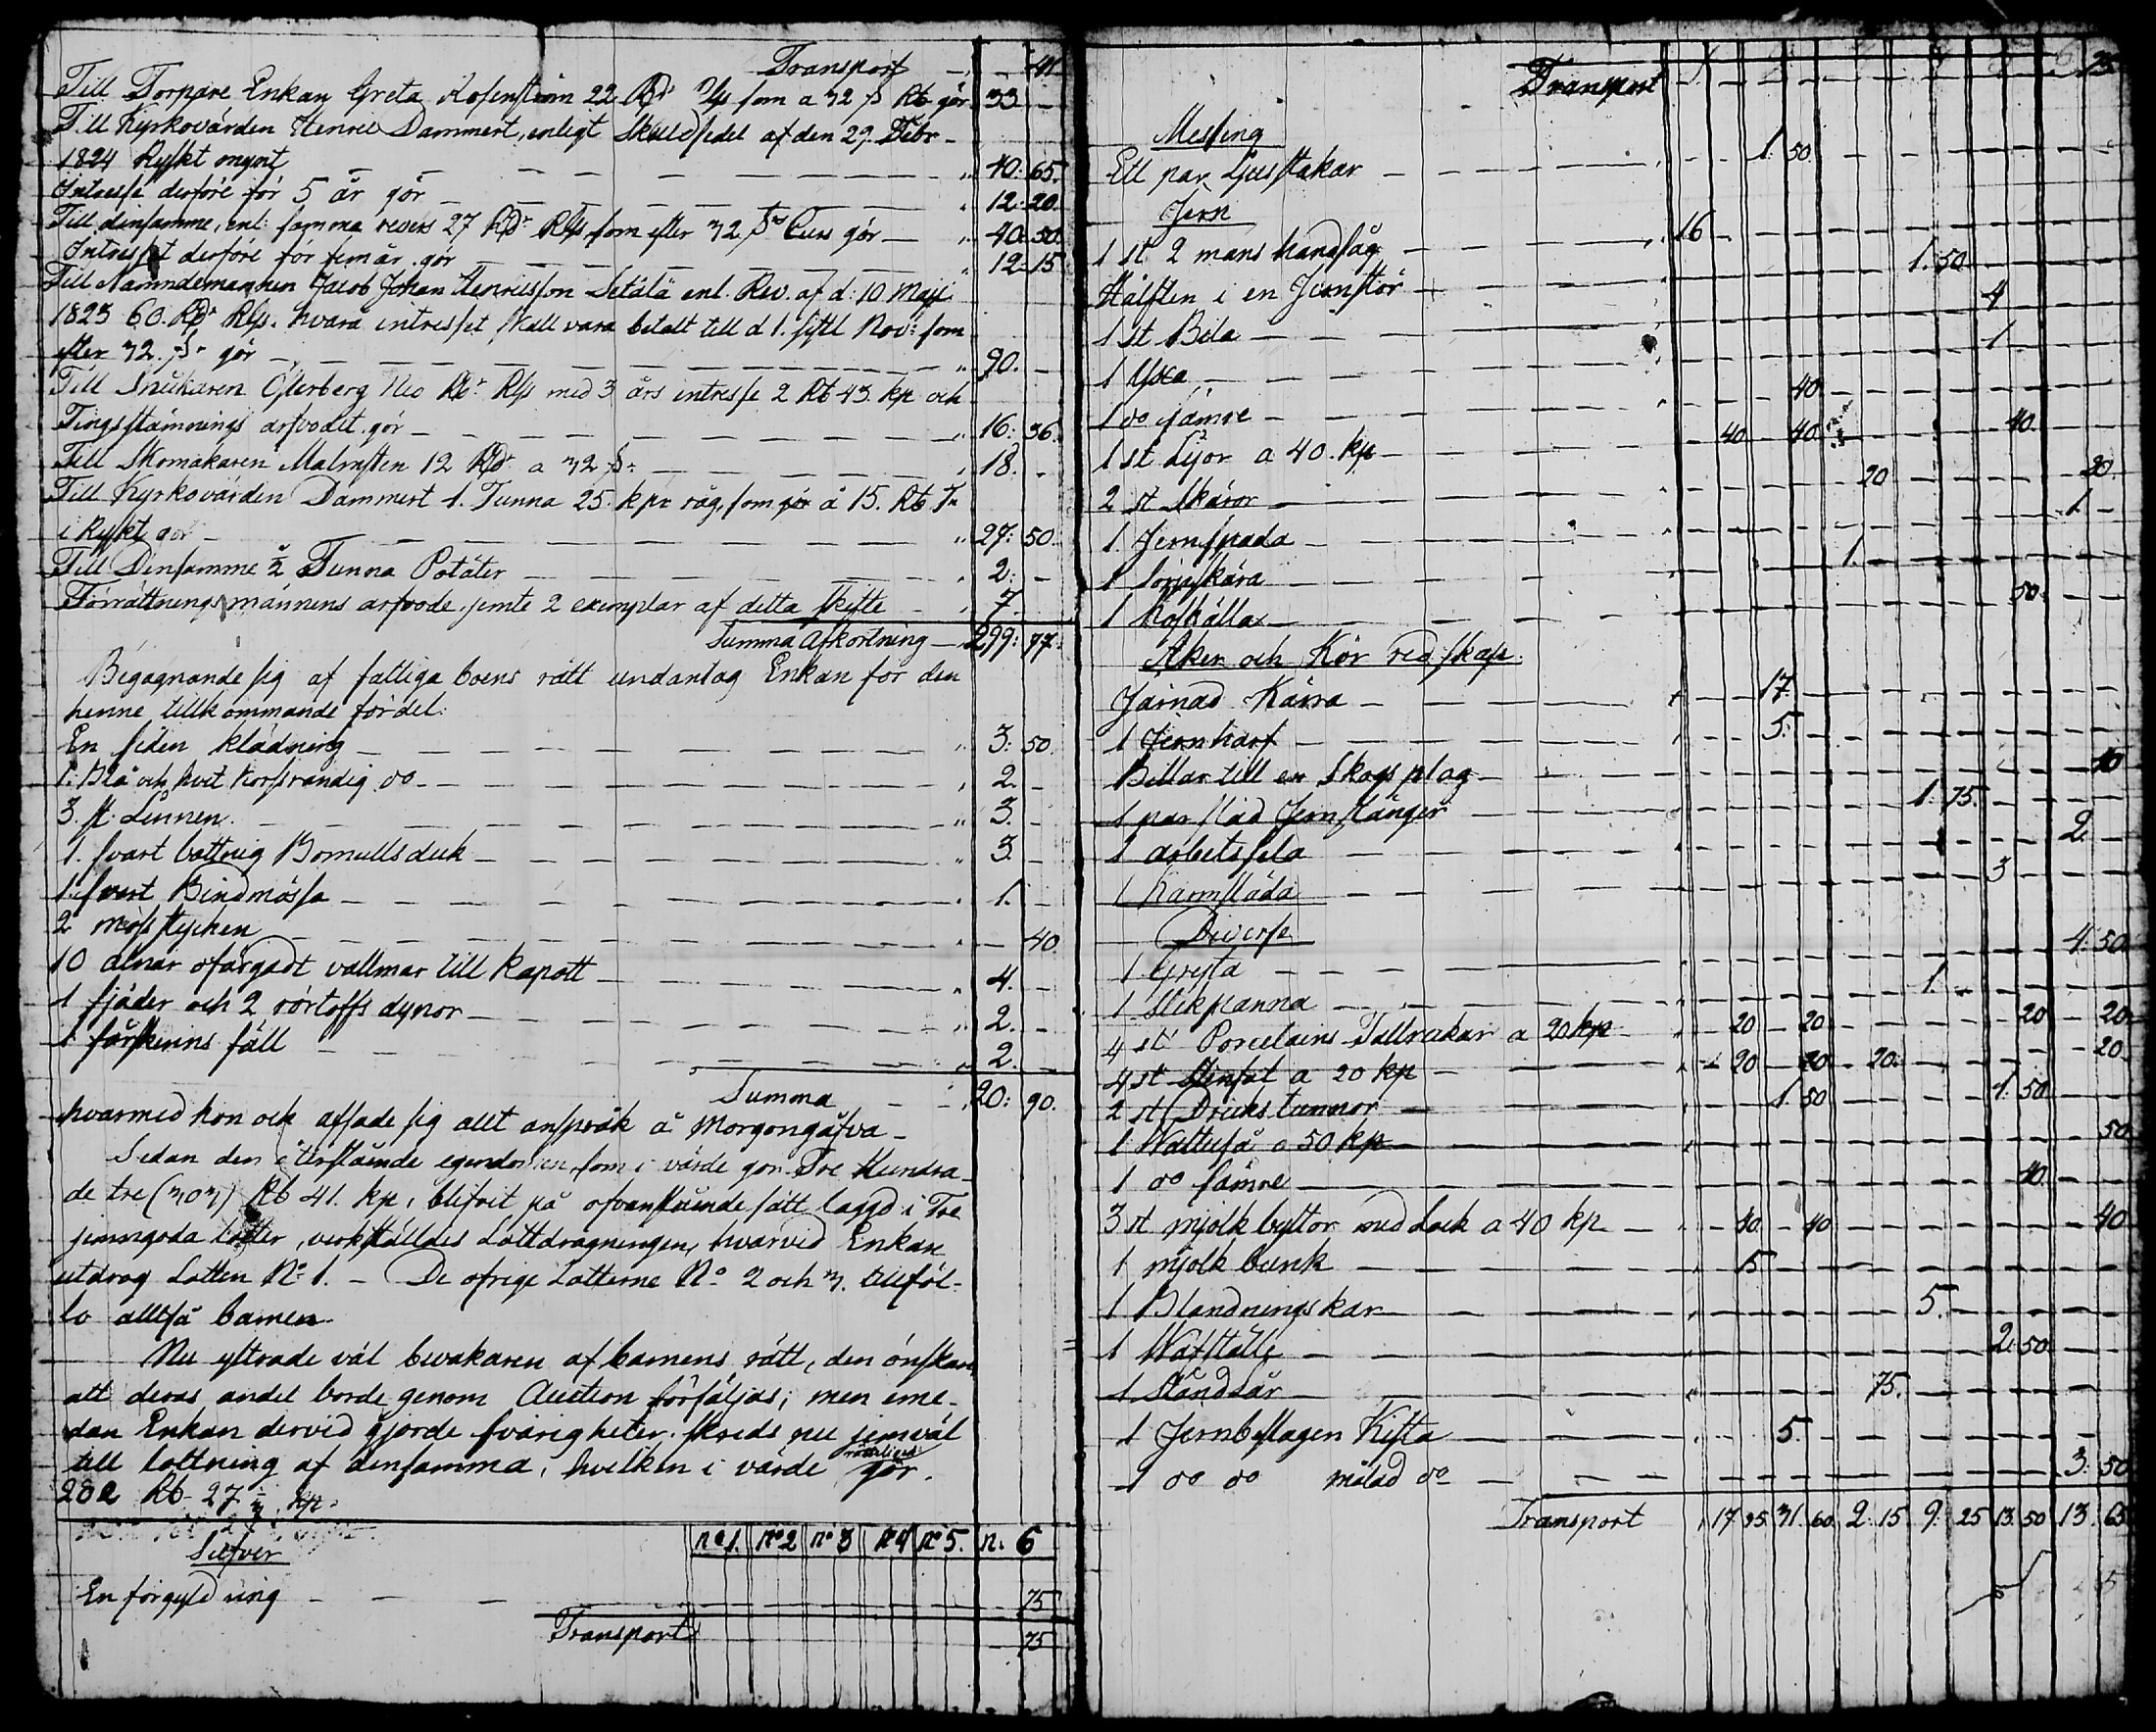 Transport — — 41
Till Torpare Enkan Greta Rosenström 22 Rdr Rgs som a 32 ß Rb gör 33 —
Till Kyrkovärden Henric Dammert, enligt Skuldsedel af den 29. Febr
1824 Ryskt mynt — — — 40: 65.
Intresse derföre för 5 år gör — — — 12: 20.
Till densamme, enl: samma revers 27 Rdr Rgs som efter 32 ß Curs gör — 40: 50.
Intresset derföre för fem år gör — — — 12: 15
Till Nämndemannen Jacob Johan Henricsson Setälä enl. Rev. af d: 10 Maji
1823 60. Rdr Rgs. hvara intresset skall vara betalt till d 1. sistl Nov: som
efter 32. ß gör — — — 90. —
Till Snickaren Österberg Nio Rdr Rgs med 3 års intresse 2 Rb 43. kp och
Tingsstämnings arfvodet gör — — — 16: 36.
Till Skomakaren Malmsten 12 Rdr a 32 ß — — — 18. —
Till Kyrkovärden Dammert 1. Tunna 25 kpr råg, som gör å 15. Rb Tn
i Ryskt gör — — — 27: 50.
Till Densamme ½ Tunna Potäter — — — 2: —
Förrättningsmännens arfvode jemte 2 exemplar af detta skifte — 7
Summa Afkortning — 299: 77.
Begagnande sig af fattiga boens rätt undantag Enkan för den
henne tillkommande fördel:
En siden klädning — — — 3: 50.
1: Blå och hvit korssrandig do — — — 2. —
3. st. Linnen. — — — 3. —
1. svart Bomullsduk — — — 3. —
1. svart Bindmössa — — — 1. —
2 mössstycken — — — 40.
10 alnar ofärgadt vallmar till kapott — — — 4. —
1 fjäder och 2 rörtoffs dynor — — — 2. —
1 fårskinns fäll — — — 2. —
Summa — 20: 90.
hvarmed hon ock afsade sig allt anspråk å Morgongåfva —
Sedan den återstående egendomen, som i värde gör Tre Hundra
de tre (303) Rb 41. kp, blifvit på ofvanstående sätt lagd i Tre
jemngoda lotter, verkställdes Lottdragningen, hvarvid Enkan
utdrog Lotten No 1. — De öfrige Lotterne No 2 och 3. tillföl-
lo alltså barnen.
Nu yttrade väl bevakaren af barnens rätt, den önskan
att deras andel borde genom Auction försäljas; men eme-
dan Enkan dervid gjorde svårigheter skreds nu jemväl
till lottning af densamma, hvilken i värde gör
282 Rb 27 kp.
Silfver no 1. no 2 no 3 no 4 no 5. n. 6
En förgyld ring — — — 75
Transport — 75
Transport — — — 75
Messing
Ett par Ljusstakar — — — 1. 50.
Jern
1 st 2 mans handsåg — — — 16 —
Hälften i en Jernstör — — — 1. 50
1 st Bila — — — 4
1 Yxa — — — 1.
1 do sämre — — — 40
1 st Lijor a 40. kp — 40 — 40. — 40.
2 st Skäror — — — 20 — 20.
1. Jernspada — — — 1. —
1 — — — 1.
1 — — — 50.
Åker och Kör redskap.
Järnad Kärra — — — 17.
1 Jernharf — — — 5.
Billar till en Skogs plog — — — 10
1 par släd Jernstänger — — — 1. 75.
1 arbetssela — — — 2. —
1 — — — 3
Diverse
1 Gryta — — — 4: 50
1 Stekpanna — — — 1.
4 st Porcelains Tallrickar a 20 kp — 20 — 20 — 20 — 20
4 st Stenfat a 20 kp — 20 — 20 — 20. — 20
2 st Drickstunnor — — — 1. 50 — 1. 50
1 Wattuså a 50 kp — — — 50
1 do sämre — — — 40.
3 st mjölkbyttor med Lock a 40 kp — 40. — 40 — 40
1 mjölk bunk — — — 15
1 Blandningskar — — — 5.
1 — — — 2. 50
1 Ståndkar — — — 75.
1 Jernbeslagen Kista — — — 5.
1 do do målad do — — — 3: 50
Transport 17 95 31. 60 2. 15 9. 25 13. 50 13. 65